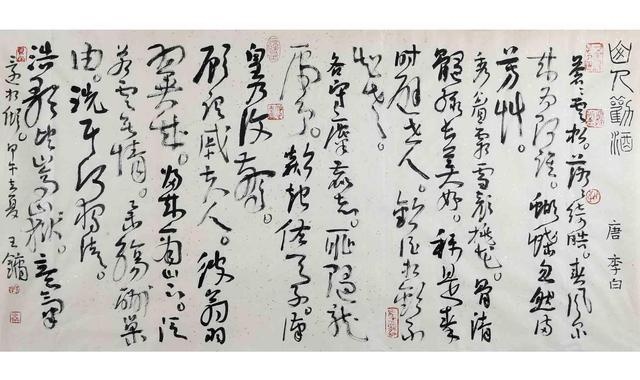 山人勸酒
唐 李白
蒼蒼雲松。落落綺皓。春風尔
來为阿誰。蝴蝶忽然満
芳艸。
秀眉霜雪顔桃花。骨清
髓緑長美好。稱是秦
时避世人。勸酒相歡不
知老。
各守麋鹿志。耻隨龍
虎爭。欻起佐太子。漢
皇乃復驚。
顧謂戚夫人。彼翁羽
翼成。歸来商山下。泛
若雲無情。舉觴酹巢
由。洗耳何獨清。
浩歌望嵩嶽。意氣
還相傾。甲午立夏 王鏞